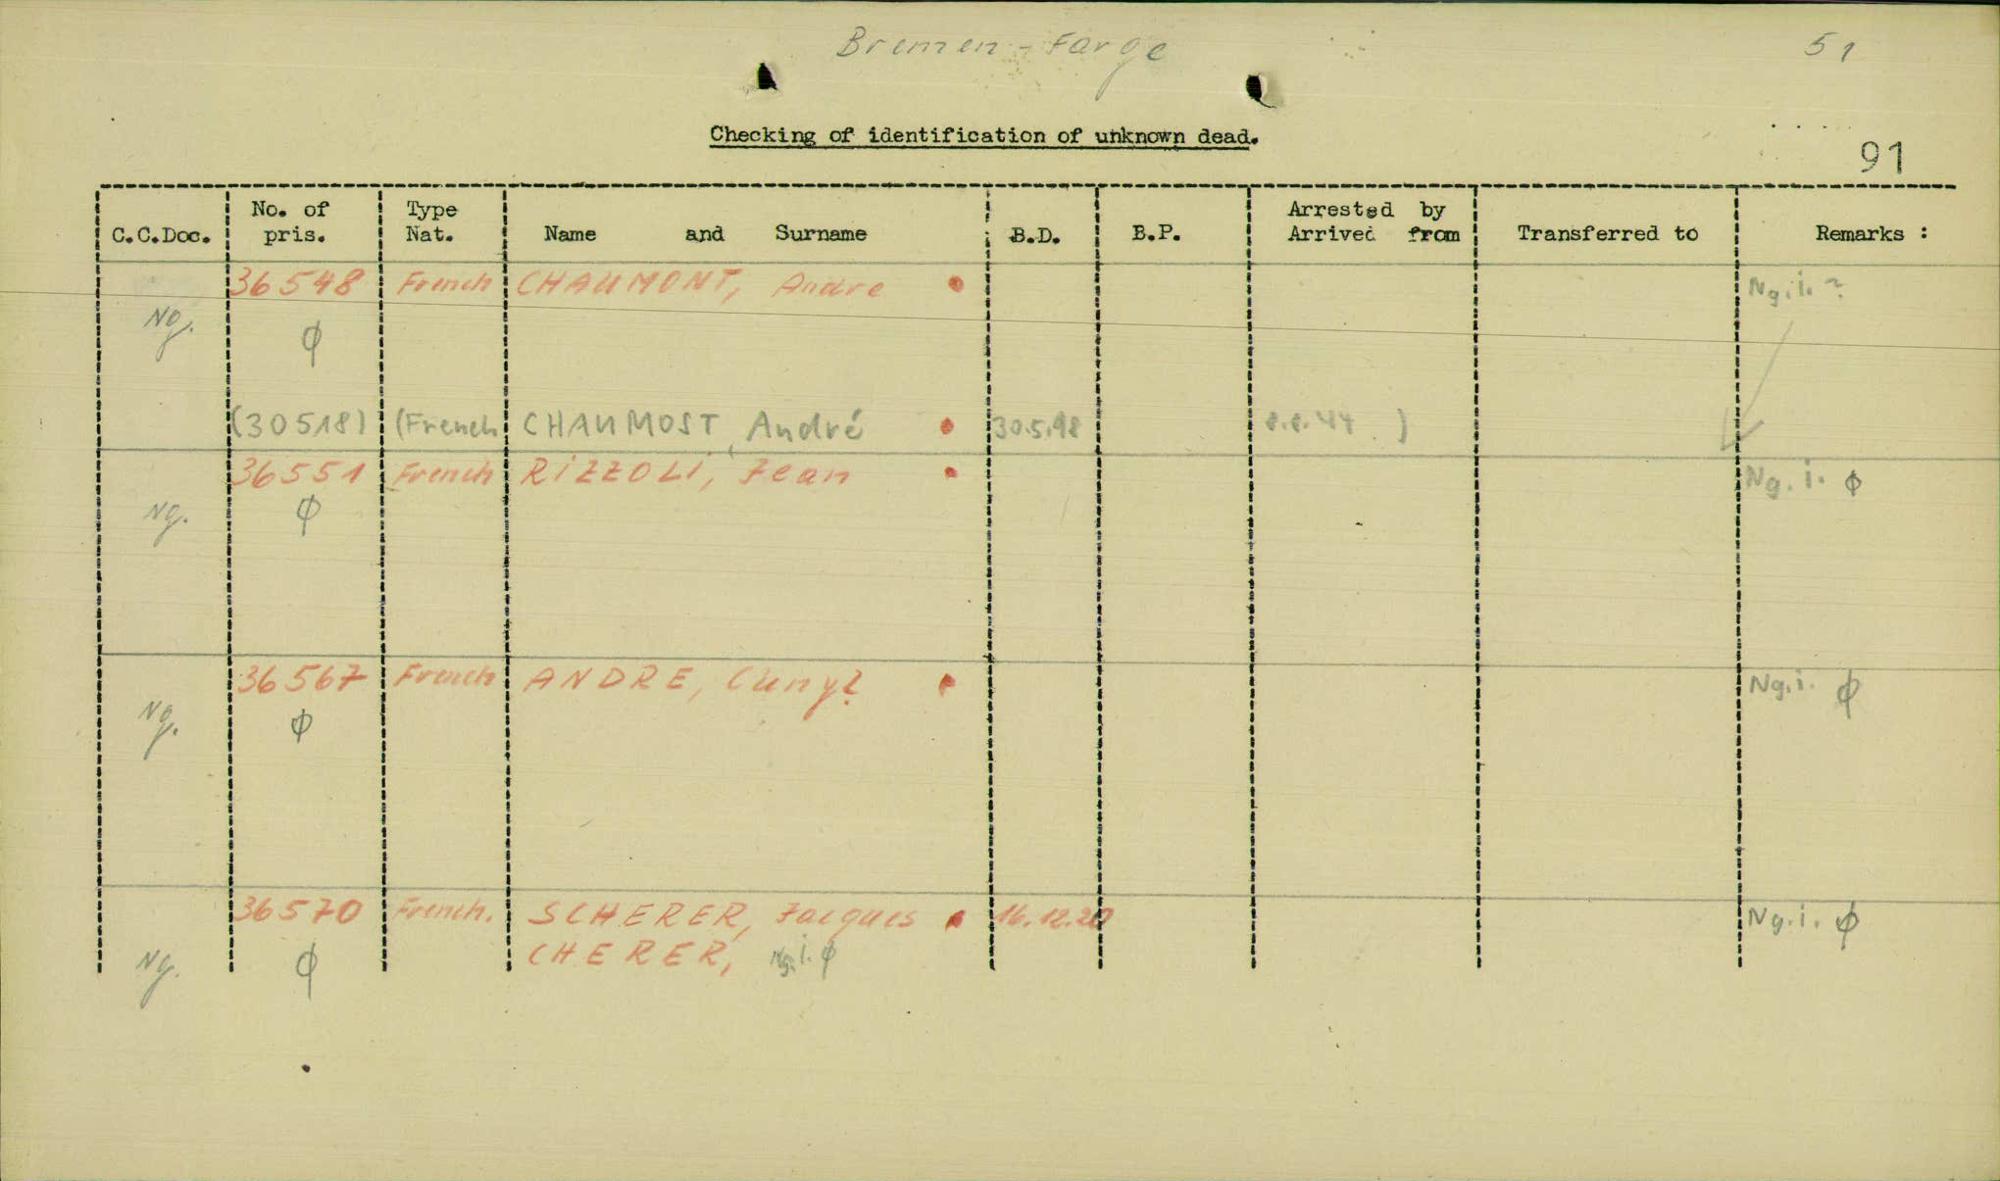 Bremen-Farge
51
Checking of identification of unknown dead.
91
C.C.Doc. No. of pris. Type Nat. Name and Surname B.D. B.P. Arrested by Arrived from Transferred to Remarks :
36548 French CHAUMONT, Andre Ng.i. ?
Ng. φ
(30518) (French CHAUMOST, André 30.5.98 44 )
36551 French RIZZOLI, Jean Ng. i. φ
Ng. φ
36567 French ANDRE, Ng.i. φ
Ng. φ
36570 French. SCHERER, Jacques 16.12.20 Ng.i. φ
CHERER, Ng.i. φ
Ng. φ